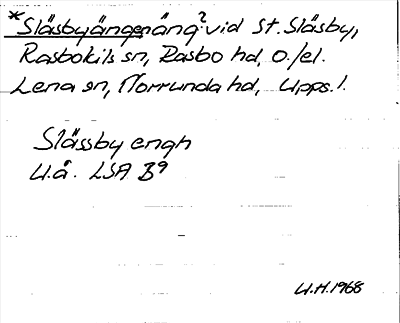 *Släsbyängenäng? vid St. Släsby,
Rasbokils sn, Rasbo hd, o./el.
Lena sn, Norrunda hd, Upps. l.
Slässby engh
U.å. LSA B9
U.H. 1968